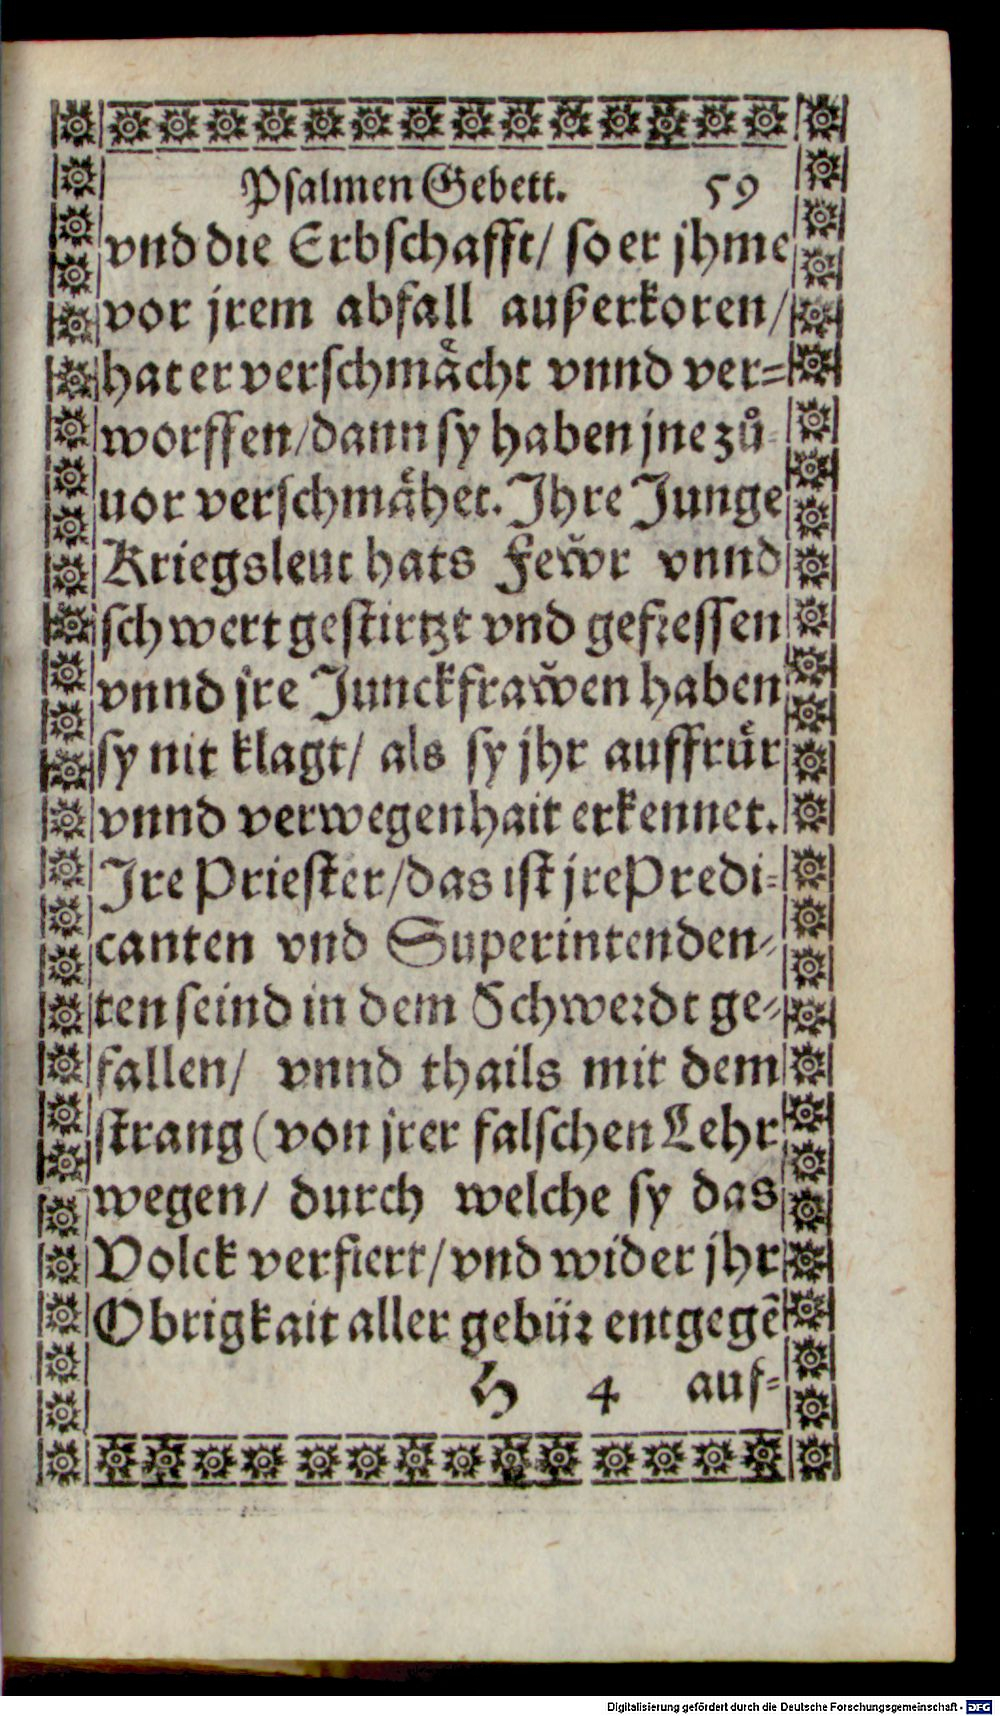 Psalmen Gebett. 59
vnd die Erbschafft/ so er jhme
vor jrem abfall außerkoren/
hat er verschmaͤcht vnnd ver=
worffen/dann sy haben jne zuͦ=
uor verschmaͤhet. Jhre Junge
Kriegsleut hats Fewͤr vnnd
schwert gestirtzt vnd gefressen
vnnd jre Junckfrawͤen haben
sy nit klagt/ als sy jhr auffruͦr
vnnd verwegenhait erkennet.
Jre Priester/das ist jre Predi=
canten vnd Superintenden=
ten seind in dem Schwerdt ge=
fallen/ vnnd thails mit dem
strang (von jrer falschen Lehr
wegen/ durch welche sy das
Volck verfiert/vnd wider jhr
Obrigkait aller gebür entgegẽ
H 4 auf=
Digitalisierung gefördert durch die Deutsche Forschungsgemeinschaft - DFG